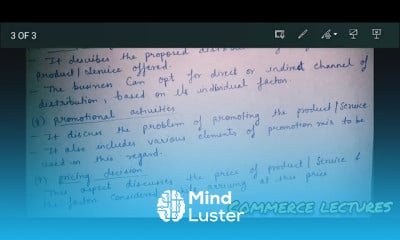 3 OF 3
- It describes the proposed
product/service offered.
- The business can opt for direct or indirect channel of
distribution, based on its individual factor.
promotional activities
- It discuss the problem of promoting the product/service
- It also includes various elements of promotion mix to be
used in this regard.
pricing decision
This aspect discusses the price of product/service &
the factors considered while arriving at this price
Mind
Luster
COMMERCE LECTURES